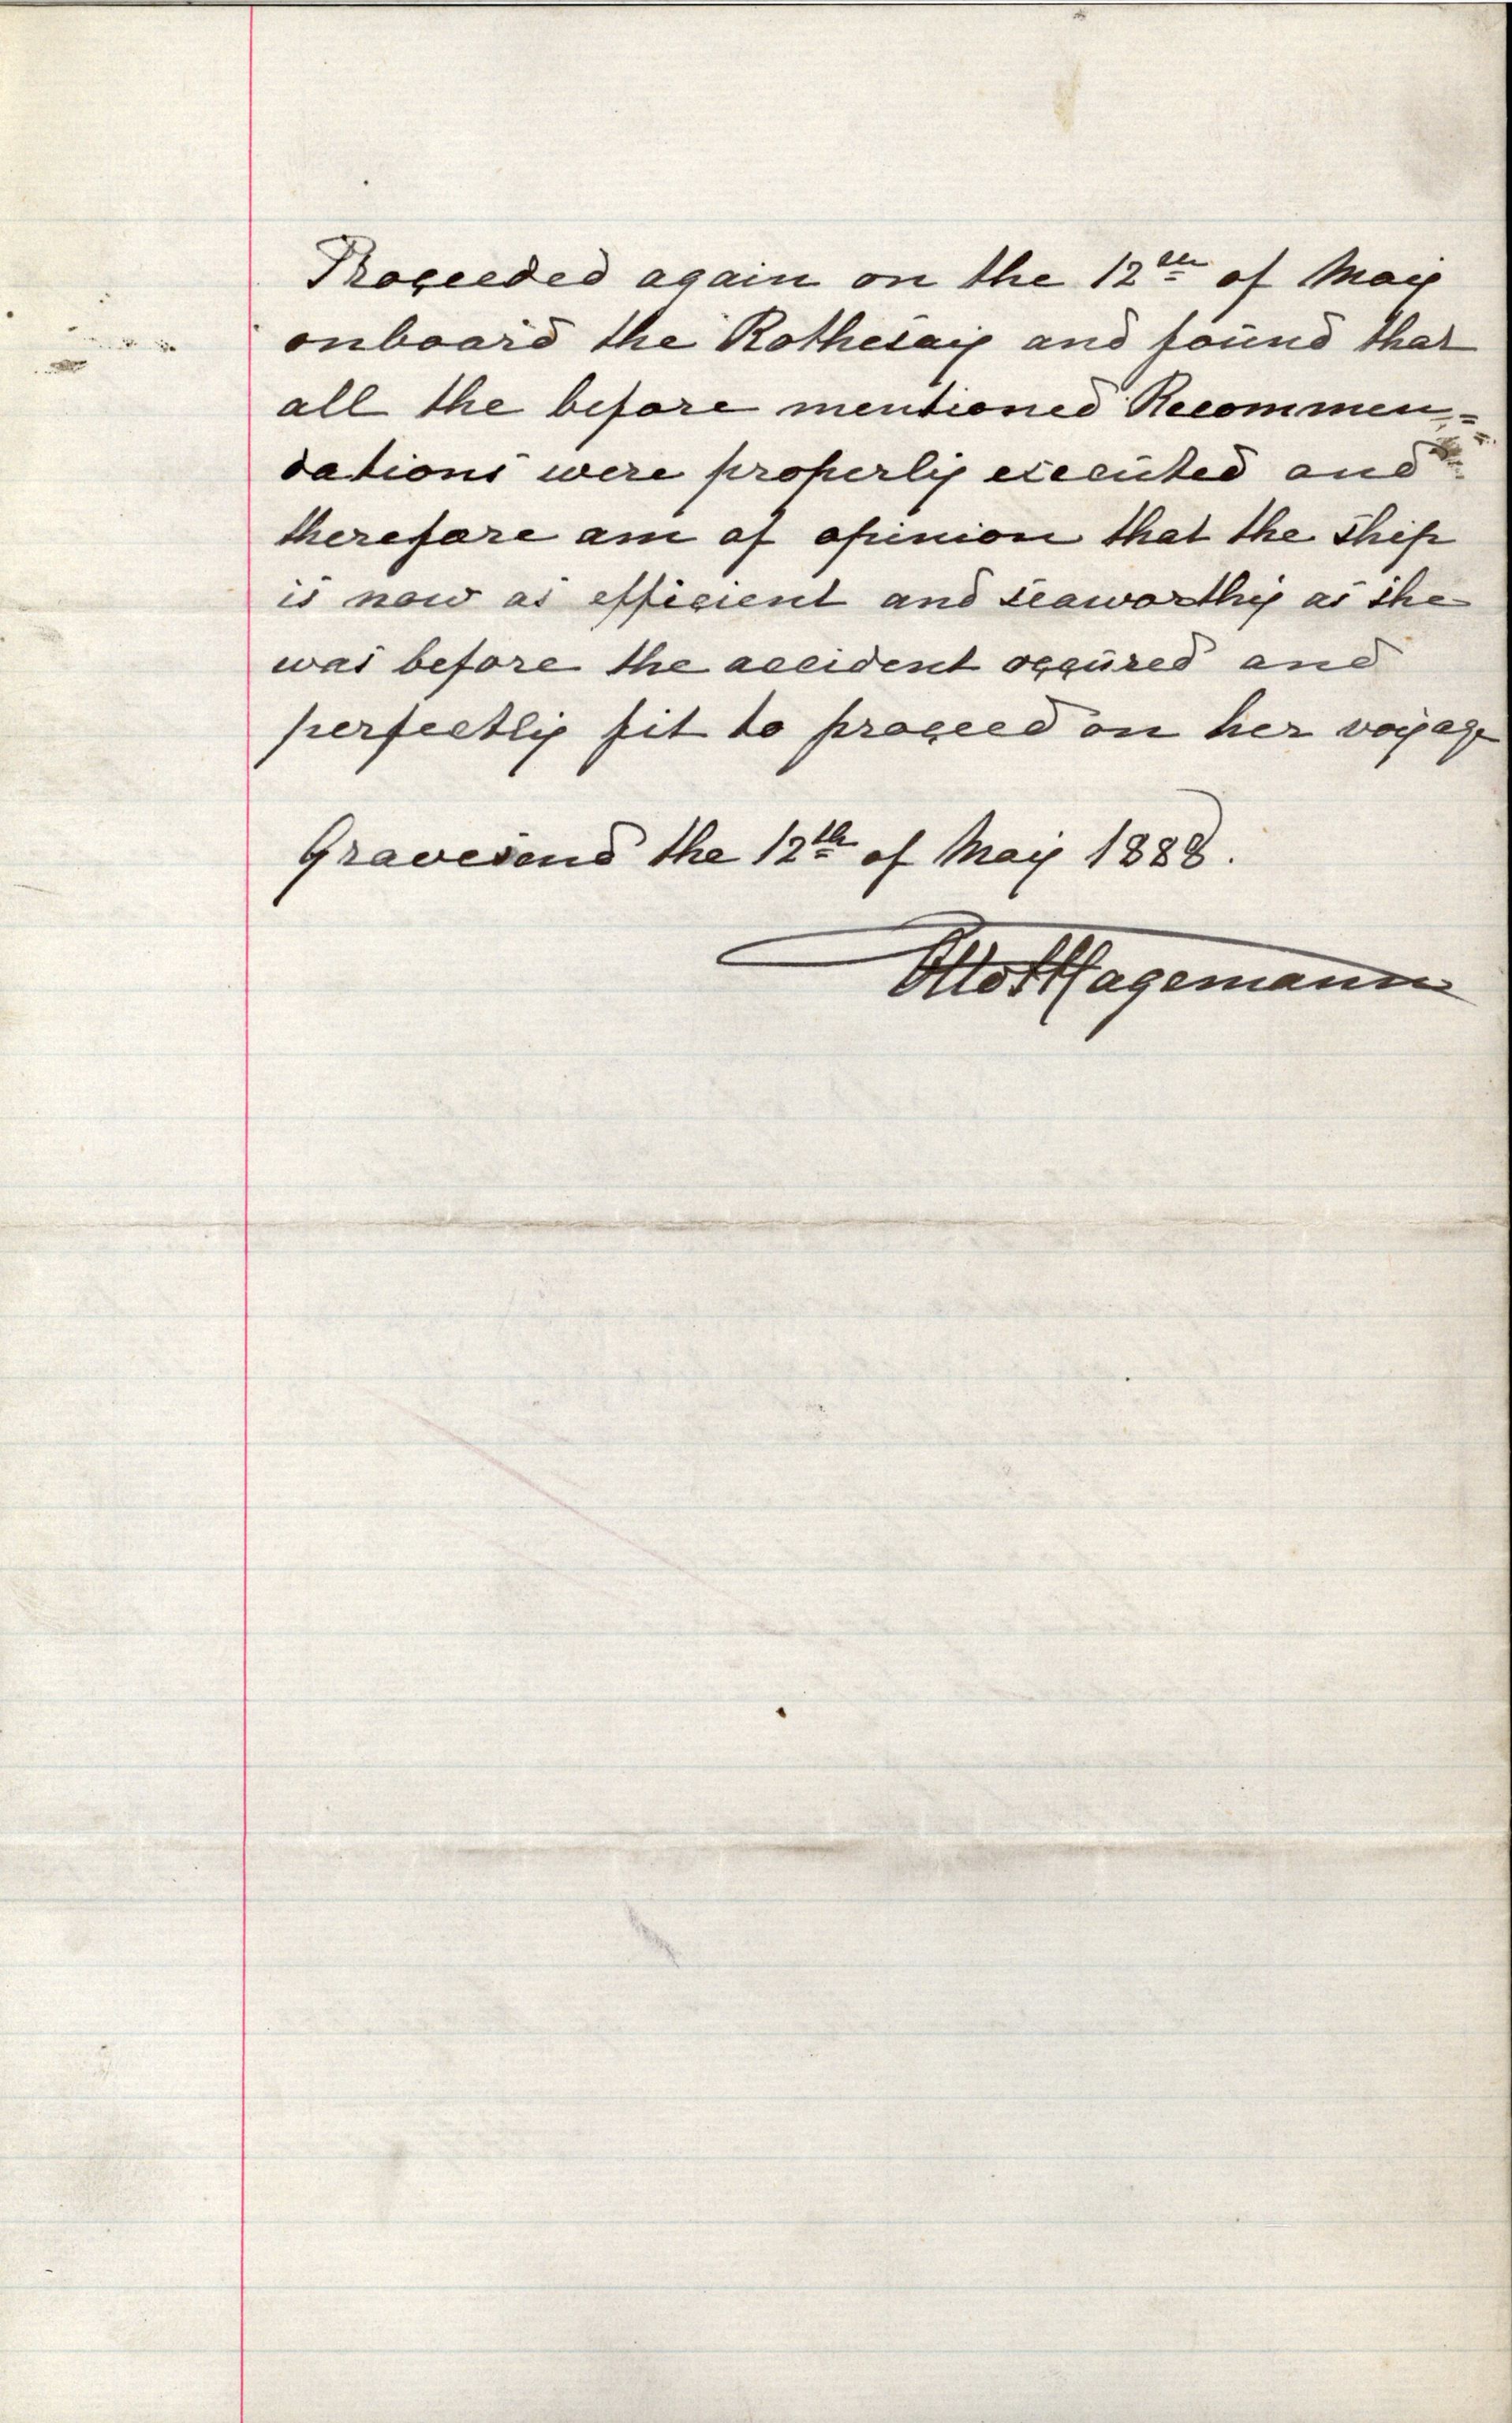 Proceeded again on the 12th of May
onboard the Rothesay and found that
all the before mentioned Recommen=
dations were properly executed and
therefore am of opinion that the Ship
is now as efficient and seaworthy as she
was before the accident occured and
perfectly fit to proceed on her voyage
Gravesend the 12th of May 1888.
Otto Hagemann